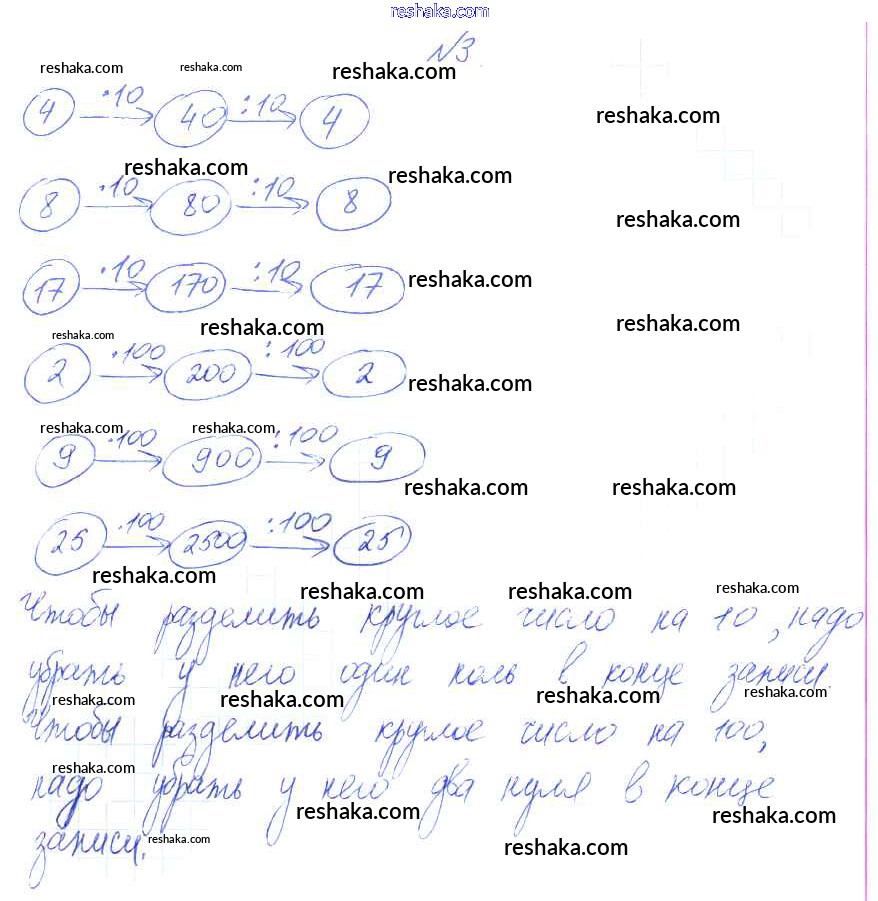 reshaka.com
№3
reshaka.com reshaka.com reshaka.com
4 ·10 40 :10 4
reshaka.com
reshaka.com reshaka.com
8 ·10 80 :10 8
reshaka.com
17 ·10 170 :10 17
reshaka.com
reshaka.com reshaka.com reshaka.com
2 ·100 200 :100 2
reshaka.com
reshaka.com reshaka.com
9 ·100 900 :100 9
reshaka.com reshaka.com
25 ·100 2500 :100 25
reshaka.com reshaka.com reshaka.com reshaka.com
Чтобы разделить круглое число на 10, надо
убрать у него один ноль в конце записи.
reshaka.com reshaka.com reshaka.com reshaka.com
Чтобы разделить круглое число на 100,
reshaka.com
надо убрать у него два нуля в конце
reshaka.com reshaka.com
записи.
reshaka.com reshaka.com